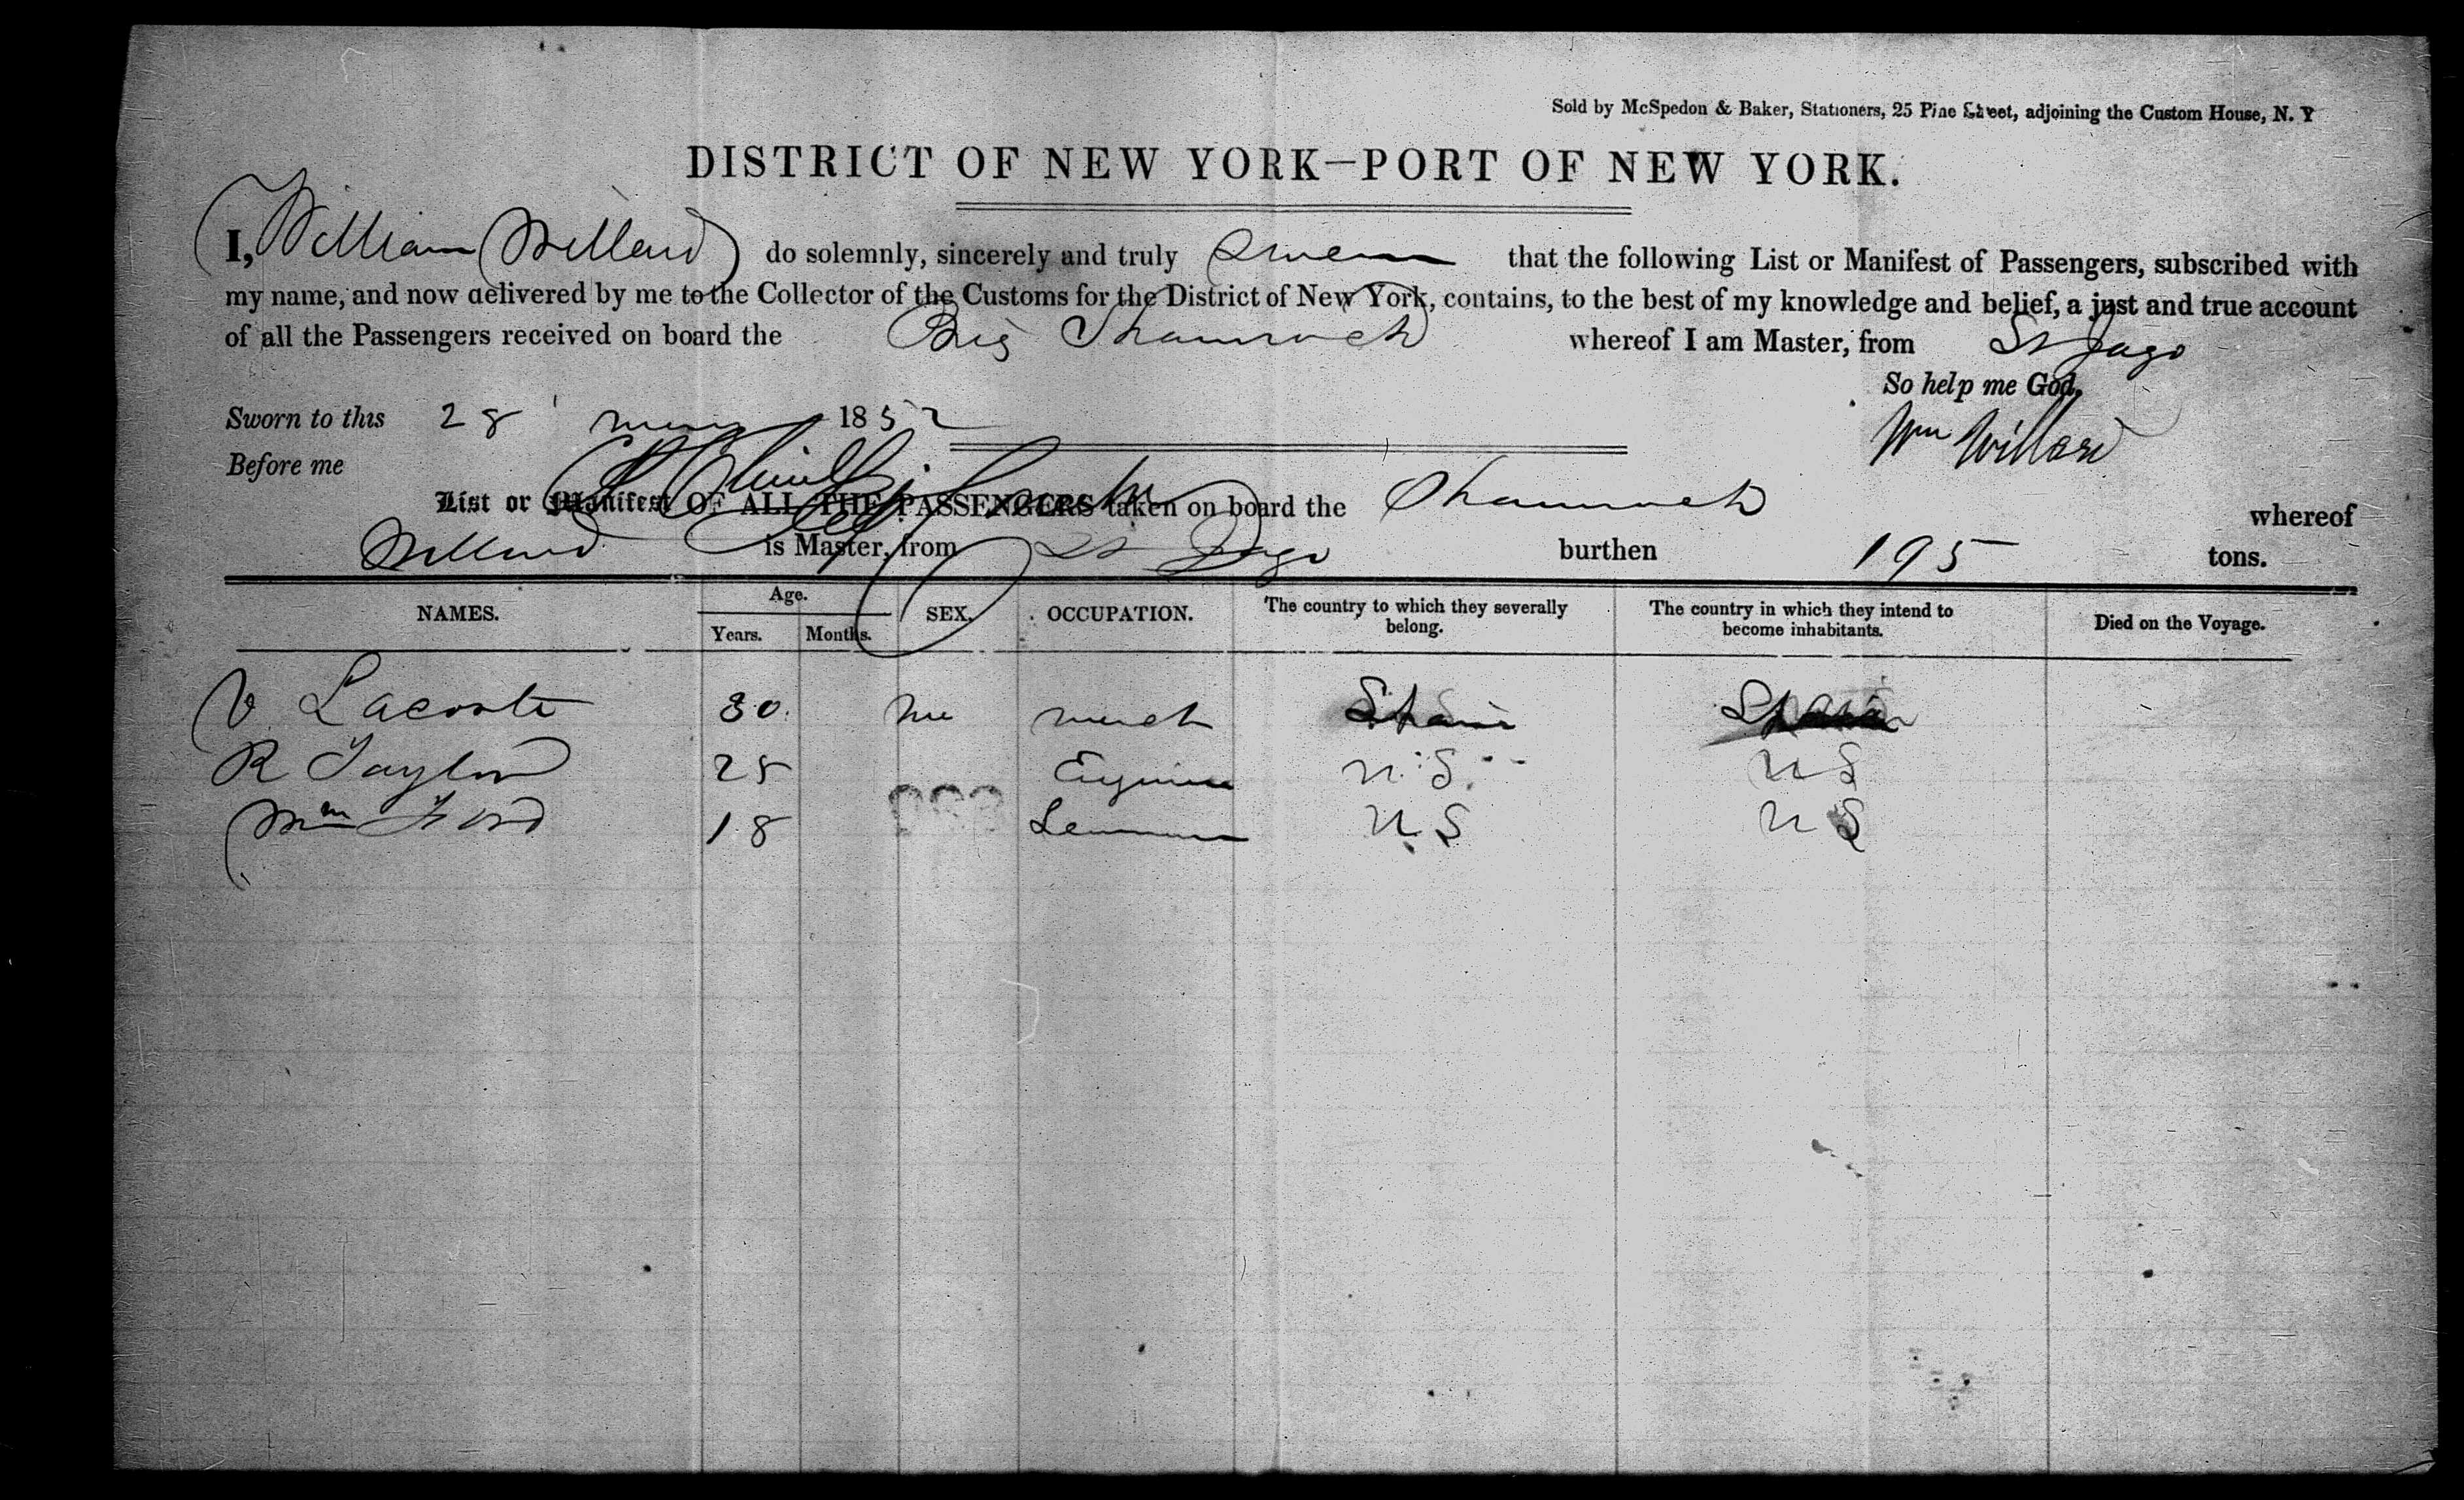 Sold by McSpedon & Baker, Stationers, 25 Pine Street, adjoining the Custom House, N. Y
DISTRICT OF NEW YORK—PORT OF NEW YORK.
I, William Willard do solemnly, sincerely and truly Swear that the following List or Manifest of Passengers, subscribed with
my name, and now delivered by me to the Collector of the Customs for the District of New York, contains, to the best of my knowledge and belief, a just and true account
of all the Passengers received on board the Brig Shamrock whereof I am Master, from St Jago
So help me God.
Sworn to this 28 May 1852 Wm Willard
Before me
List or Manifest OF ALL THE PASSENGERS taken on board the Shamrock whereof
Willard is Master, from St Jago burthen 195 tons.
NAMES. Age. Years. Months. SEX. OCCUPATION. The country to which they severally belong. The country in which they intend to become inhabitants. Died on the Voyage.
V Lacoste 30. merch Spain Spain
R Taylor 25 Engineer U.S. U S
Wm Ford 18 Seaman U S U S